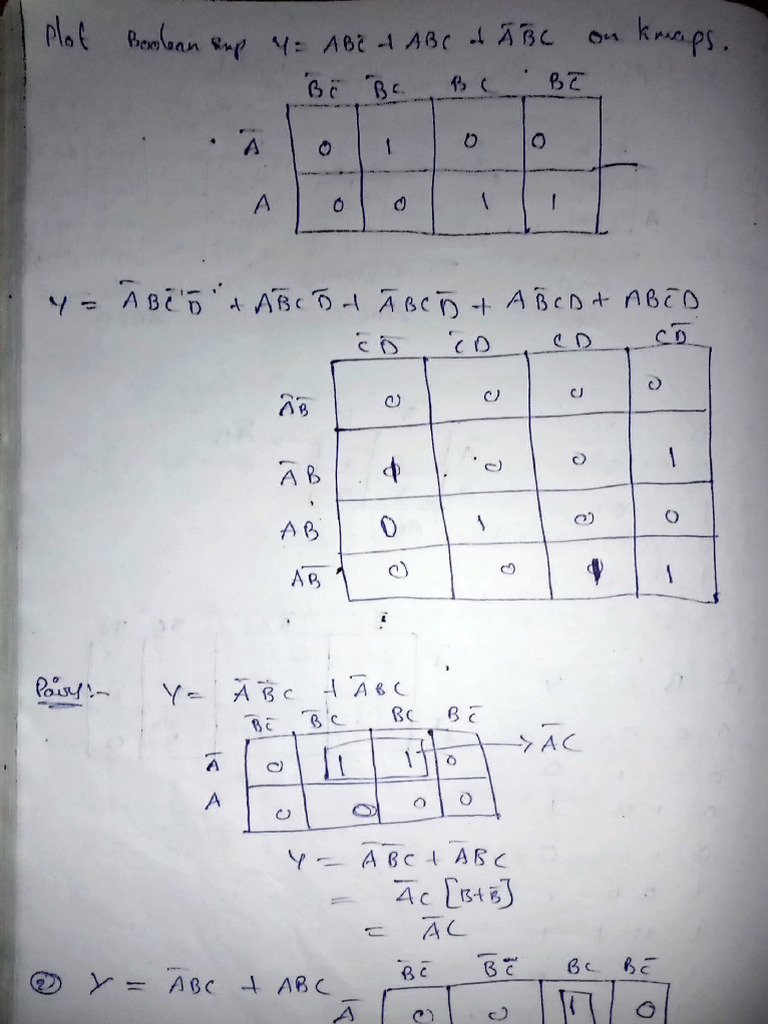 Plot Boolean exp Y = ABC̄ + ABC + ĀB̄C on kmaps.
B̄C̄ B̄C BC BC̄
Ā 0 1 0 0
A 0 0 1 1
Y = ĀBC̄D̄ + AB̄CD̄ + ĀBCD̄ + AB̄CD + ABC̄D
C̄D̄ C̄D CD CD̄
ĀB̄ 0 0 0 0
ĀB 1 0 0 1
AB 0 1 0 0
AB̄ 0 0 1 1
Pairs:- Y = ĀB̄C + ĀBC
B̄C̄ B̄C BC BC̄
Ā 0 1 1 0 → ĀC
A 0 0 0 0
Y = ĀB̄C + ĀBC
= ĀC [B+B̄]
= ĀC
② Y = ĀBC + ABC B̄C̄ B̄C̄ BC BC̄
Ā 0 0 1 0